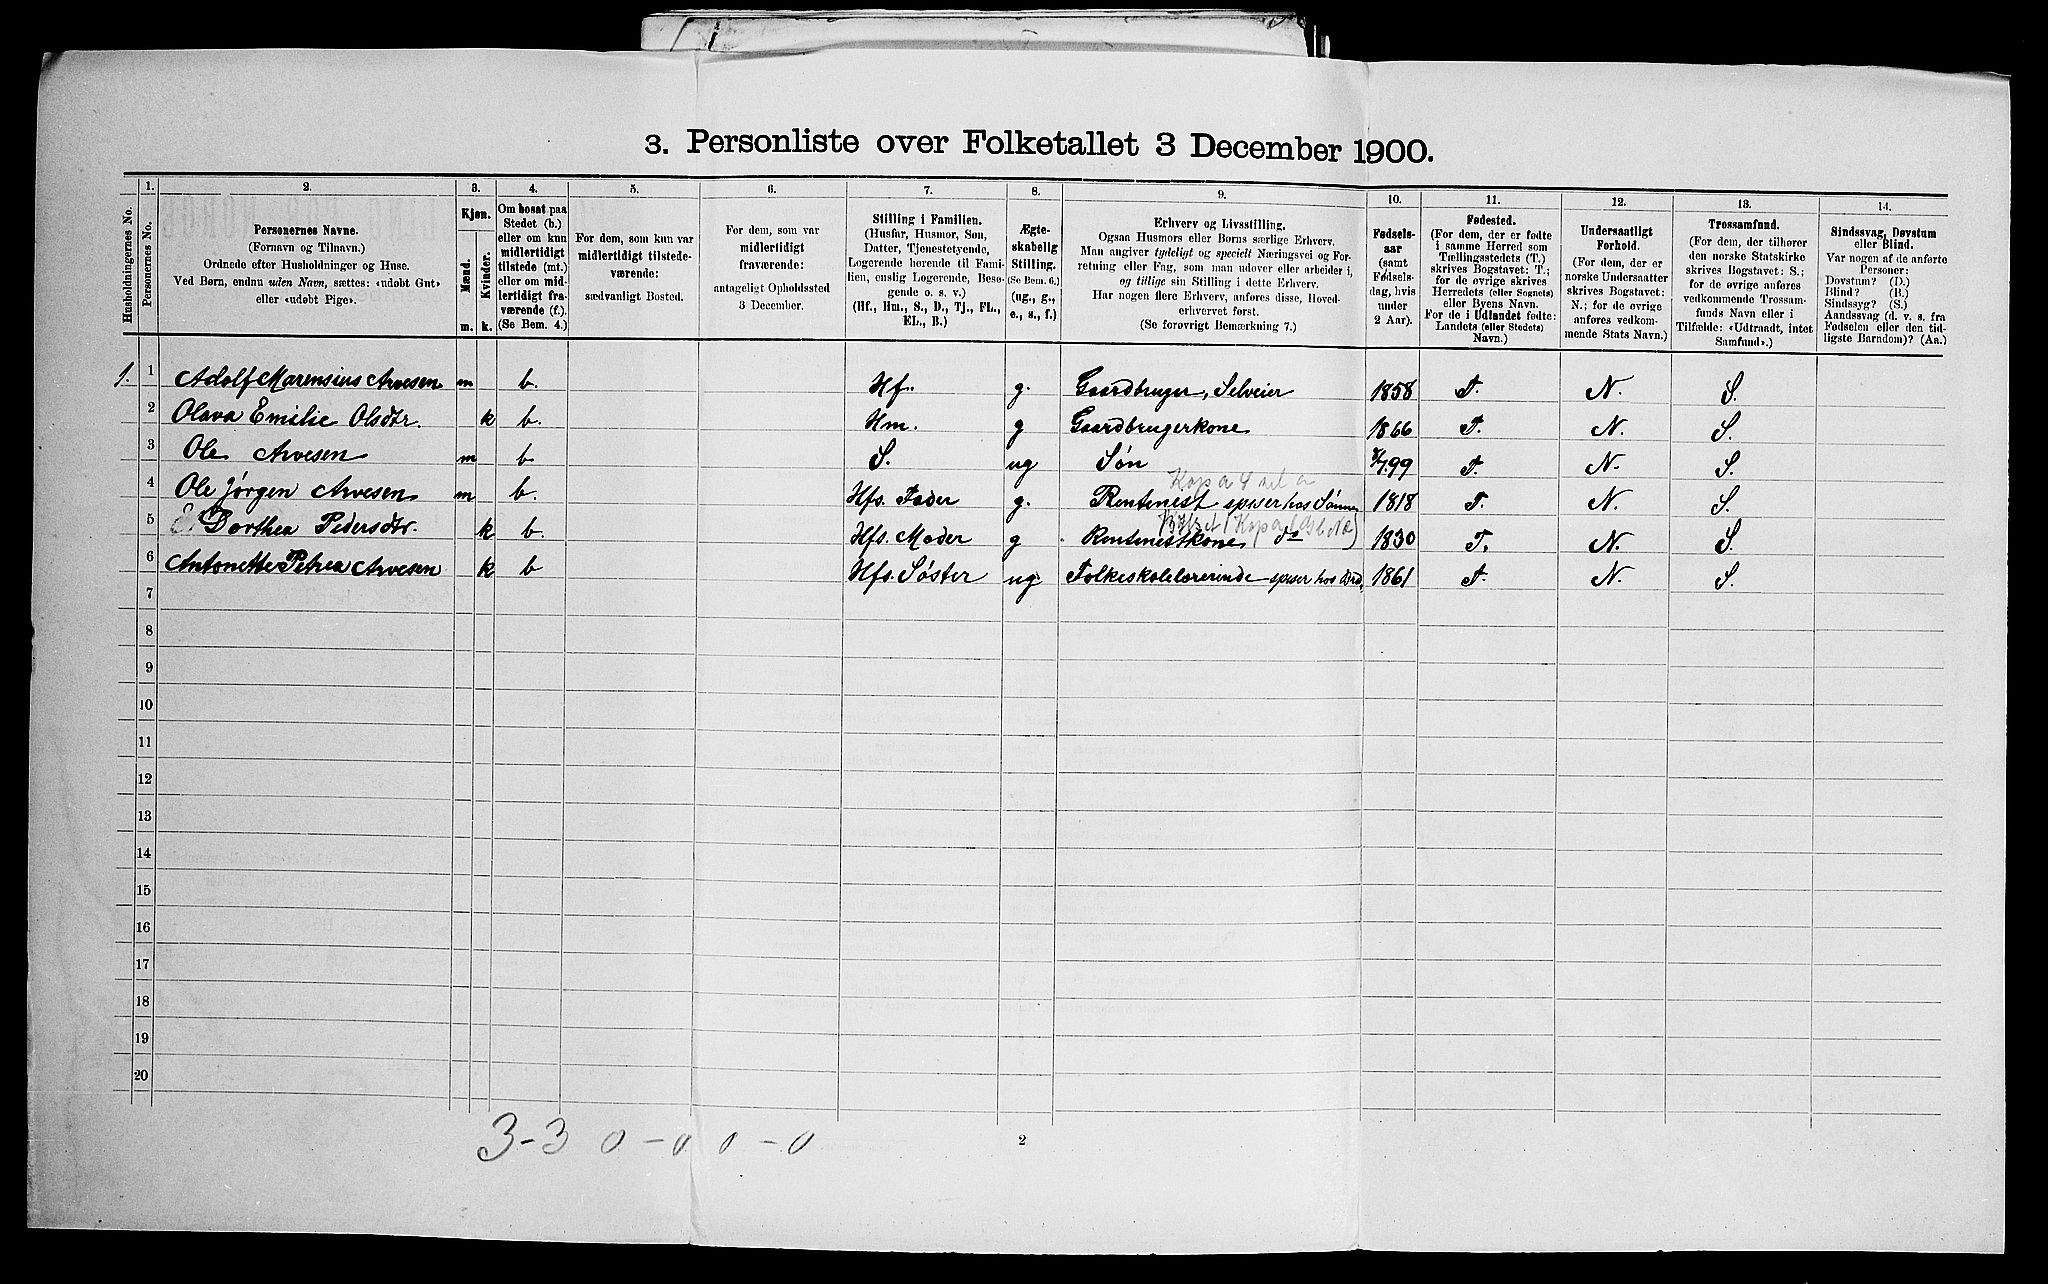 3. Personliste over Folketallet 3 December 1900.
Husholdningernes No.
1.
Personernes No.
2.
Personernes Navne.
(Fornavn og Tilnavn.)
Ordnede efter Husholdninger og Huse.
Ved Børn, endnu uden Navn, sættes: «udøbt Gut»
eller «udøbt Pige».
3.
Kjøn.
Mænd.
Kvinder.
m. k.
4.
Om bosat paa
Stedet (b.)
eller om kun
midlertidigt
tilstede (mt.)
eller om mid-
lertidigt fra-
værende (f.).
(Se Bem. 4.)
5.
For dem, som kun var
midlertidigt tilstede-
værende:
sædvanligt Bosted.
6.
For dem, som var
midlertidigt
fraværende:
antageligt Opholdssted
3 December.
7.
Stilling i Familien.
(Husfar, Husmor, Søn,
Datter, Tjenestetyende,
Logerende hørende til Fami-
lien, enslig Logerende, Besø-
gende o. s. v.)
(Hf., Hm., S., D., Tj., FL.,
EL., B.)
8.
Ægte-
skabelig
Stilling.
(Se Bem. 6.)
(ug., g.,
e., s., f.)
9.
Erhverv og Livsstilling.
Ogsaa Husmors eller Børns særlige Erhverv.
Man angiver tydeligt og specielt Næringsvei og For-
retning eller Fag, som man udover eller arbeider i,
og tillige sin Stilling i dette Erhverv.
Har nogen flere Erhverv, anføres disse, Hoved-
erhvervet først.
(Se forøvrigt Bemærkning 7.)
10.
Fødsels-
aar
(samt
Fødsels-
dag, hvis
under
2 Aar).
11.
Fødested.
(For dem, der er fødte
i samme Herred som
Tællingsstedets (T.)
skrives Bogstavet: T.;
for de øvrige skrives
Herredets (eller Sognets)
eller Byens Navn.
For de i Udlandet fødte:
Landets (eller Stedets)
Navn.)
12.
Undersaatligt
Forhold.
(For dem, der er
norske Undersaatter
skrives Bogstavet:
N.; for de øvrige
anføres vedkom-
mende Stats Navn.)
13.
Trossamfund.
(For dem, der tilhører
den norske Statskirke
skrives Bogstavet: S.;
for de øvrige anføres
vedkommende Trossam-
funds Navn eller i
Tilfælde: «Udtraadt, intet
Samfund».)
14.
Sindssvag, Døvstum
eller Blind.
Var nogen af de anførte
Personer:
Døvstum? (D.)
Blind? (B.)
Sindssyg? (S.)
Aandssvag (d. v. s. fra
Fødselen eller den tid-
ligste Barndom)? (Aa.)
1. 1 Adolf Marensius Arvesen m b. Hf. g. Gaardbruger, Selveier 1858 T. N. S.
2 Olava Emilie Olsdtr. k b. Hm. g Gaardbrugerkone 1866 T. N. S.
3 Ole Arvesen m b S. ug Søn 99 T. N. S.
4 Ole Jørgen Arvesen m b. Hfs. Fader g. Rentenest spiser hos Sønnen 1818 T. N. S.
5 Dorthea Pedersdtr. k b. Hfs. Moder g Rentenestkone do 1830 T. N. S.
6 Antonette Petrea Arvesen k b Hfs. Søster ug. Folkeskolelærerinde spiser hos Brd. 1861 T. N. S.
7
8
9
10
11
12
13
14
15
16
17
18
19
20
3-3 0-0 0-0
2